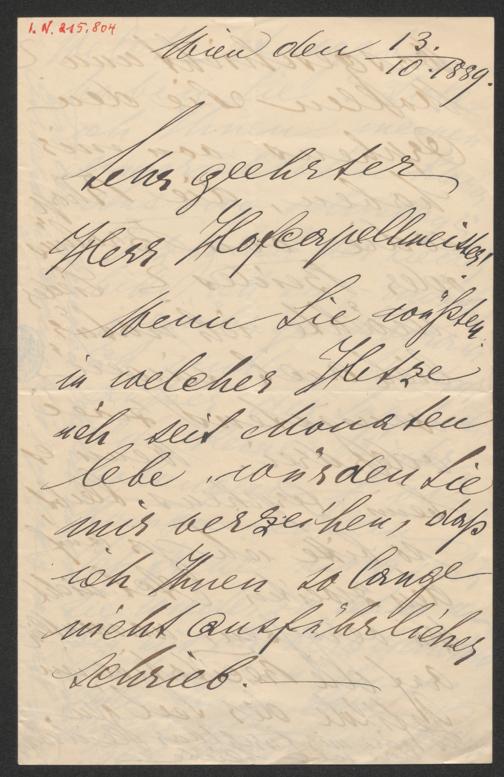 I. N. 215.804
Wien den 13./10. 1889.
Sehr geehrter
Herr Hofcapellmeister!
Wenn Sie wüßten,
in welcher Hetze
ich seit Monaten
lebe, würden Sie
mir verzeihen, daß
ich Ihnen so lange
nicht ausführlicher
schrieb. —